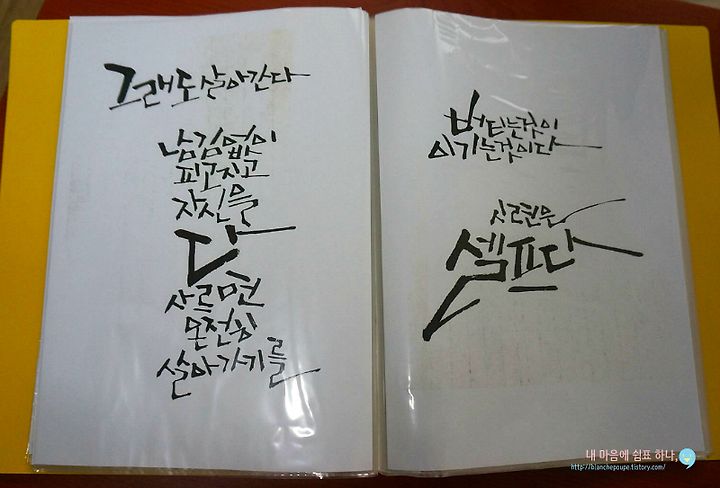 그래도 살아간다
남김없이
피고 지고
자신을
다
사르며
온전히
살아가기를
버티는 것이
이기는 것이다
시련은
셀프다
내 마음에 쉼표 하나,
http://blanchepoupe.tistory.com/